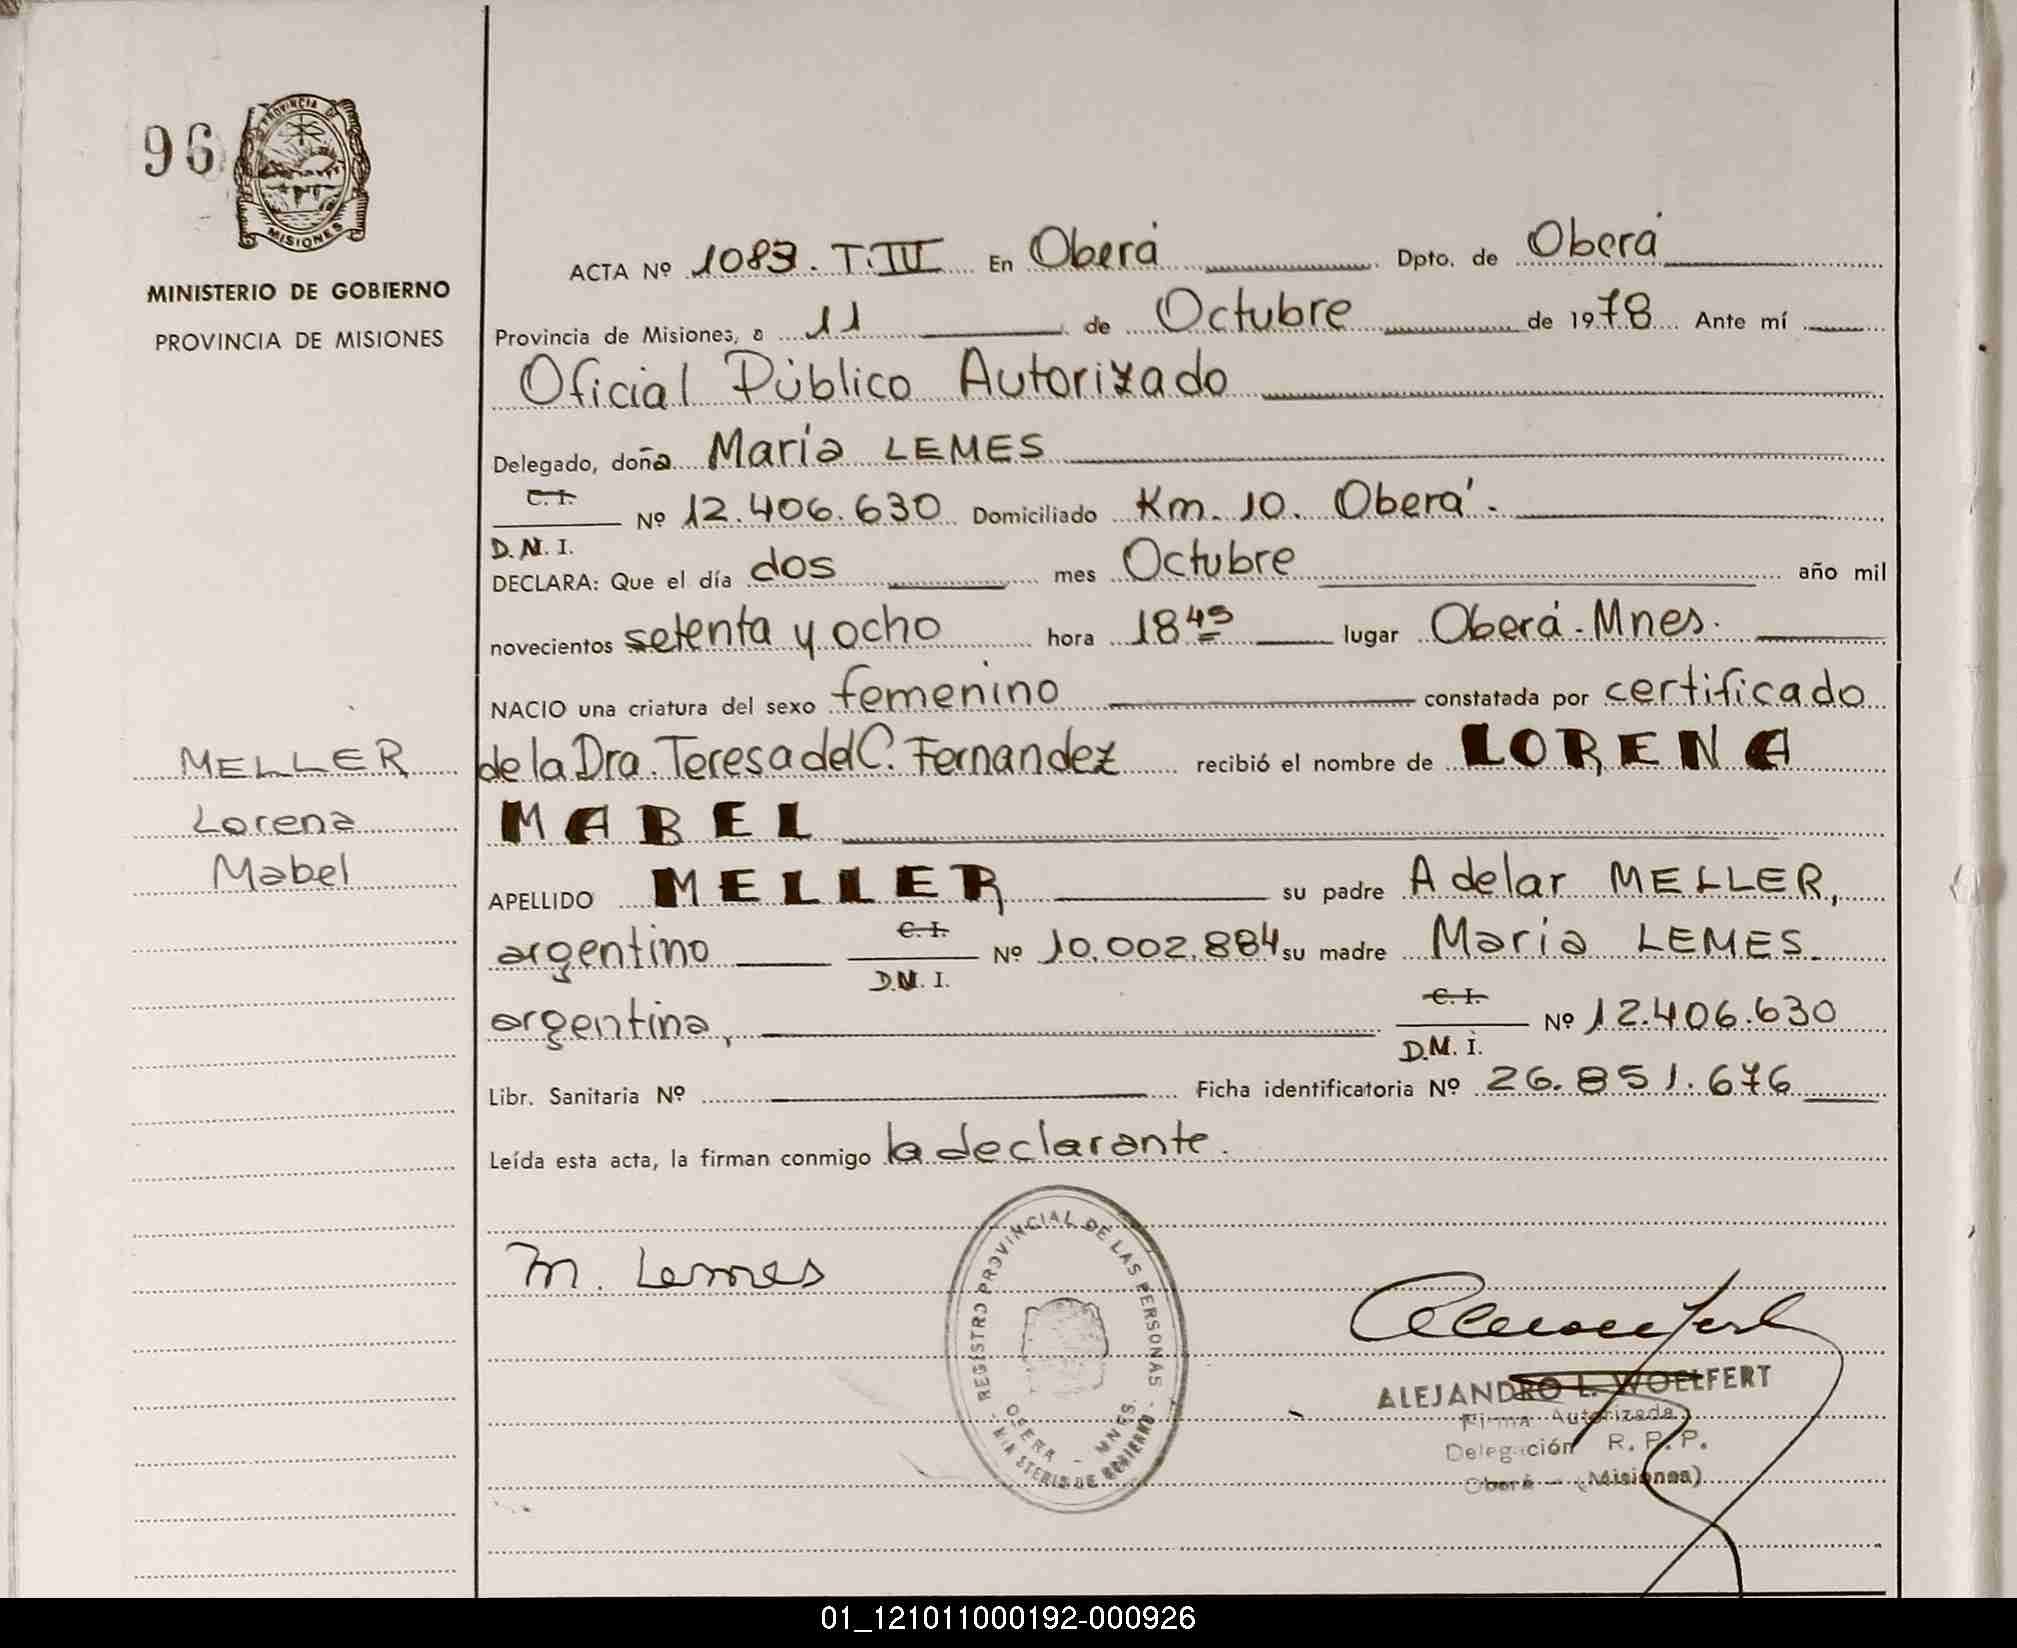 96
PROVINCIA DE
MISIONES
MINISTERIO DE GOBIERNO
PROVINCIA DE MISIONES
ACTA Nº 1083. T.IV En Oberá Dpto. de Oberá
Provincia de Misiones, a 11 de Octubre de 1978 Ante mí
Oficial Público Autorizado
Delegado, doña María LEMES
C. I.
Nº 12.406.630 Domiciliado Km. 10. Oberá.
D.N.I.
DECLARA: Que el día dos mes Octubre año mil
novecientos setenta y ocho hora 18 45 lugar Oberá-Mnes.
NACIO una criatura del sexo femenino constatada por certificado
de la Dra. Teresa del C. Fernandez recibió el nombre de LORENA
MABEL
APELLIDO MELLER su padre Adelar MELLER,
argentino C. I. Nº 10.002.884 su madre María LEMES
D.N.I.
argentina, C. I. Nº 12.406.630
D.N.I.
Libr. Sanitaria Nº Ficha identificatoria Nº 26.851.676
Leída esta acta, la firman conmigo la declarante.
MELLER
Lorena
Mabel
M. Lemes
REGISTRO PROVINCIAL DE LAS PERSONAS
OBERA - MNES.
- MINISTERIO DE GOBIERNO -
ALEJANDRO L. WOELFERT
Firma Autorizada
Delegación R. P. P.
Oberá - (Misiones)
01_121011000192-000926